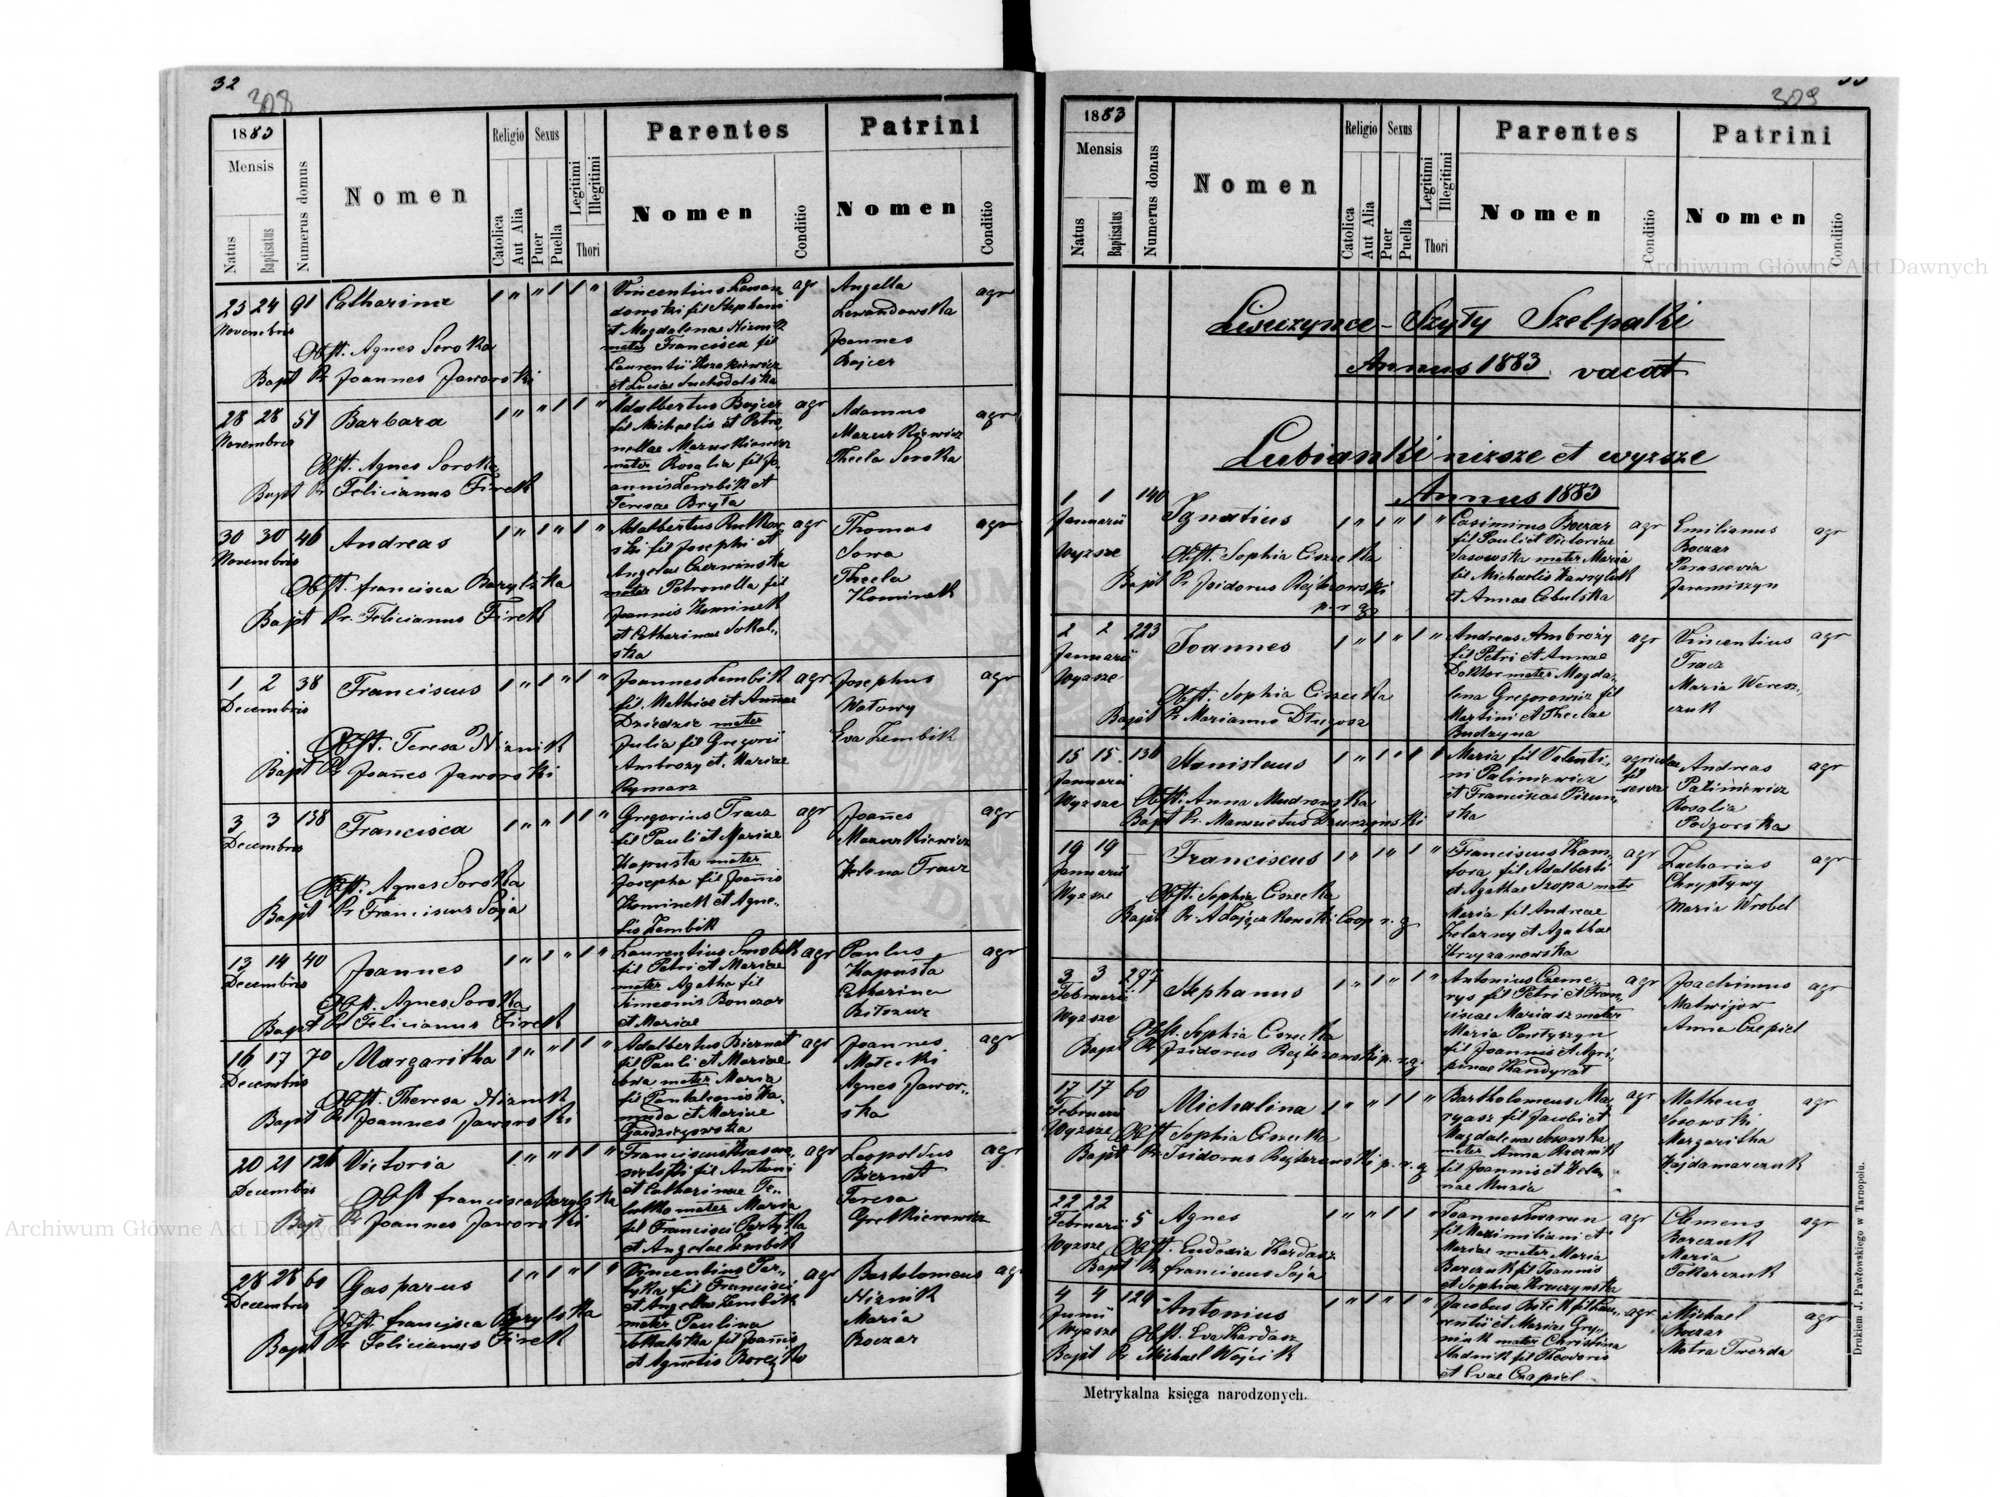 32
308
1883
Mensis
Natus
Baptisatus
Numerus domus
Nomen
Religio
Catolica
Aut Alia
Sexus
Puer
Puella
Legitimi
Illegitimi
Thori
Parentes
Nomen
Conditio
Patrini
Nomen
Conditio
23 24 91 Catharina 1 " " 1 1 "
Novembris
Obst. Agnes Soroka
Bapt Pr Joannes Jaworski
Vincentius Lewan
dowski fil Stephani
et Magdalenae Niznik
mater Francisca fil
Laurentii
et Luciae Suchodolska
agr
Angella
Lewandowska
Joannes
Bajcer
agr
28 28 51 Barbara 1 " " 1 1 "
Novembris
Obst. Agnes Soroka
Bapt Pr Felicianus Firek
Adalbertus Bajcer
fil Michaelis et Petro
nellae Mazurkiewicz
mater Rosalia fil Jo
annis Zembik et
Teresae Bryła
agr
Adamus
Mazurkiewicz
Thecla Soroka
agr
30 30 46 Andreas 1 " 1 " 1 "
Novembris
Obst. francisca Barylska
Bapt Pr. Felicianus Firek
Adalbertus Rutkow
ski fil Josephi et
Angelae Czerwinska
mater Petronella fil
Joannis Kominek
et Catharinae Sokal„
ska
agr
Thomas
Sowa
Thecla
Kominek
agr
1 2 38 Franciscus 1 " 1 " 1 "
Decembris
Obst. Teresa Niznik
Bapt Pr Joannes Jaworski
Joannes Zembik
fil Mathiae et Annae
Dziedzic mater
Julia fil Gregorii
Ambrozy et Mariae
Rymarz
agr
Josephus
Watowy
Eva Zembik
agr
3 3 138 Francisca 1 " " 1 1 "
Decembris
Obst. Agnes Soroka
Bapt Pr Franciscus Soja
Gregorius Tracz
fil Pauli et Mariae
Kapusta mater
Josepha fil Joannis
Kominek et Agne„
tis Zembik
agr
Joannes
Mazurkiewicz
Helena Tracz
agr
13 14 40 Joannes 1 " 1 " 1 "
Decembris
Obst. Agnes Soroka
Bapt Pr Felicianus Firek
Laurentius Smobik
fil Petri et Mariae
mater Agatha fil
Simeonis Bonczar
et Mariae
agr
Paulus
Kapusta
Catharina
agr
16 17 70 Margaritha 1 " " 1 1 "
Decembris
Obst. Theresa Niznik
Bapt Pr Joannes Jaworski
Adalbertus Biernat
fil Pauli et Mariae
Sowa mater Maria
fil Pantaleonis Ka
nuda et Mariae
agr
Joannes
Małecki
Agnes Jawor„
ska
agr
20 21 126 Victoria 1 " " 1 1 "
Decembris
Obst francisca Barylska
Bapt Pr Joannes Jaworski
fil Antoni
et Catharinae
mater Maria
fil Francisci Partyka
et Angelae Zembik
agr
Leopoldus
Biernat
Teresa
agr
28 28 60 Gasparus 1 " 1 " 1 "
Decembris
Obst. francisca Barylska
Bapt Pr Felicianus Firek
Vincentius Par„
tyka fil Francisci
et Angella Zembik
mater Paulina
fil Joannis
et Agnetis
agr
Bartolomeus
Niznik
Maria
Boczar
agr
309
1883
Mensis
Natus
Baptisatus
Numerus domus
Nomen
Religio
Catolica
Aut Alia
Sexus
Puer
Puella
Legitimi
Illegitimi
Thori
Parentes
Nomen
Conditio
Patrini
Nomen
Conditio
Lisiczynce - Szyły Szelpaki
Annus 1883 vacat
Lubianki nizsze et wyzsze
Annus 1883
1 1 140 Ignatius 1 " 1 " 1 "
Januarii
Wyzsze
Obst. Sophia Ciszecka
Bapt Pr Isidorus Rejterowski
p. r. g.
Casimirus Boczar
fil Pauli et Victoriae
Sasowska mater Maria
fil Michaelis Hawryluk
et Annae Cebulska
agr
Emilianus
Boczar
Parascevia
Jaremiszyn
agr
2 2 223 Joannes 1 " 1 " 1 "
Januarii
Wyzsze
Obst. Sophia Ciszecka
Bapt Pr Marianus Długosz
Andreas Ambroży
fil Petri et Annae
Doktor mater Magda„
lena Gregorowicz fil
Martini et Theclae
Budzyna
agr
Vincentius
Tracz
Maria Weresz„
czuk
agr
15 15 130 Stanislaus 1 " 1 " 1
Januarii
Wyzsze
Obst. Anna Mudrowska
Bapt Pr. Mansuetus Druzynski
Maria fil Valenti„
ni Paliniewicz
et Franciscae Pisun„
ska
agricolae
fil
serva
Andreas
Paliniewicz
Rosalia
Podgorska
agr
19 19 Franciscus 1 " 1 " 1 "
Januarii
Wyzsze
Obst. Sophia Ciszecka
Bapt Pr. A Zajączkowski Coop r. g
Franciscus Kam„
fora fil Adalberti
et Agathae Szopa mater
Maria fil Andreae
Zelazny et Agathae
Krzyzanowska
agr
Zacharias
Chryptywy
Maria Wrobel
agr
3 3 297 Stephanus 1 " 1 " 1 "
Februarii
Wyzsze
Obst. Sophia Ciszecka
Bapt Pr Isidorus Rejterowski p. r. g.
Antonius Czeme„
rys fil Petri et Fran„
ciscae Mariasz mater
Maria Pastyszyn
fil Joannis et Agri„
pinae Kandyrat
agr
Joachimus
Matwijow
Anna Czepiel
agr
17 17 60 Michalina 1 " " 1 1 "
Februarii
Wyzsze
Obst Sophia Ciszecka
Bapt Pr. Isidorus Rejterowski p. r. g
Bartholomeus Ma„
ryasz fil Jacobi et
Magdalenae Sosowska
mater Anna
fil Joannis et Hele„
nae Muzia
agr
Matheus
Sosowski
Margaritha
Hajdamarczuk
agr
22 22 5 Agnes 1 " " 1 1 "
Februarii
Wyzsze
Obst. Eudoxia Kardasz
Bapt Pr franciscus Soja
Joannes Kwarun
fil Maximiliani et
Mariae mater Maria
Barczuk fil Joannis
et Sophiae Kruczynska
agr
Clemens
Barczuk
Maria
Tokarczuk
agr
4 4 129 Antonius 1 " 1 " 1 "
Junii
Wyzsze
Obst. Eva Kardasz
Bapt Pr Michael Wojcik
Jacobus Botek fil Lau„
rentii et Mariae Gry„
niuk mater Christina
Stadnik fil Theodoris
et Evae Czapiel
agr
Michael
Boczar
Motra Twerda
agr
Metrykalna księga narodzonych.
Drukiem J. Pawłowskiego w Tarnopolu.
Archiwum Główne Akt Dawnych
Archiwum Główne Akt Dawnych